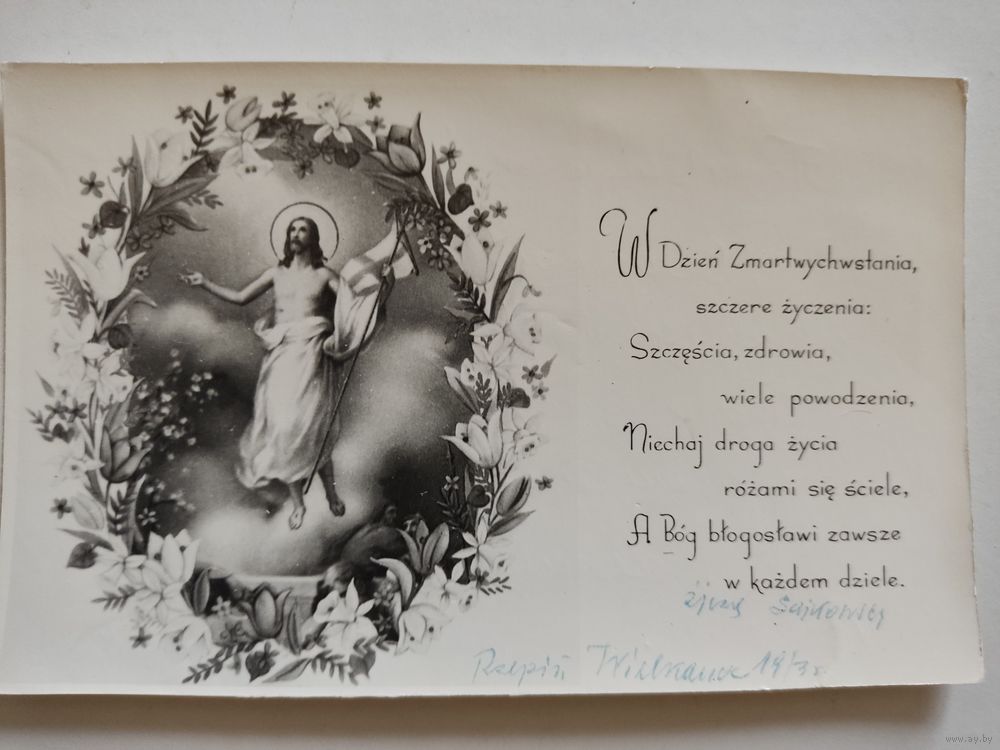 W Dzień Zmartwychwstania,
szczere życzenia:
Szczęścia, zdrowia,
wiele powodzenia,
Niechaj droga życia
różami się ściele,
A Bóg błogosławi zawsze
w każdem dziele.
Rzepin
www.ay.by